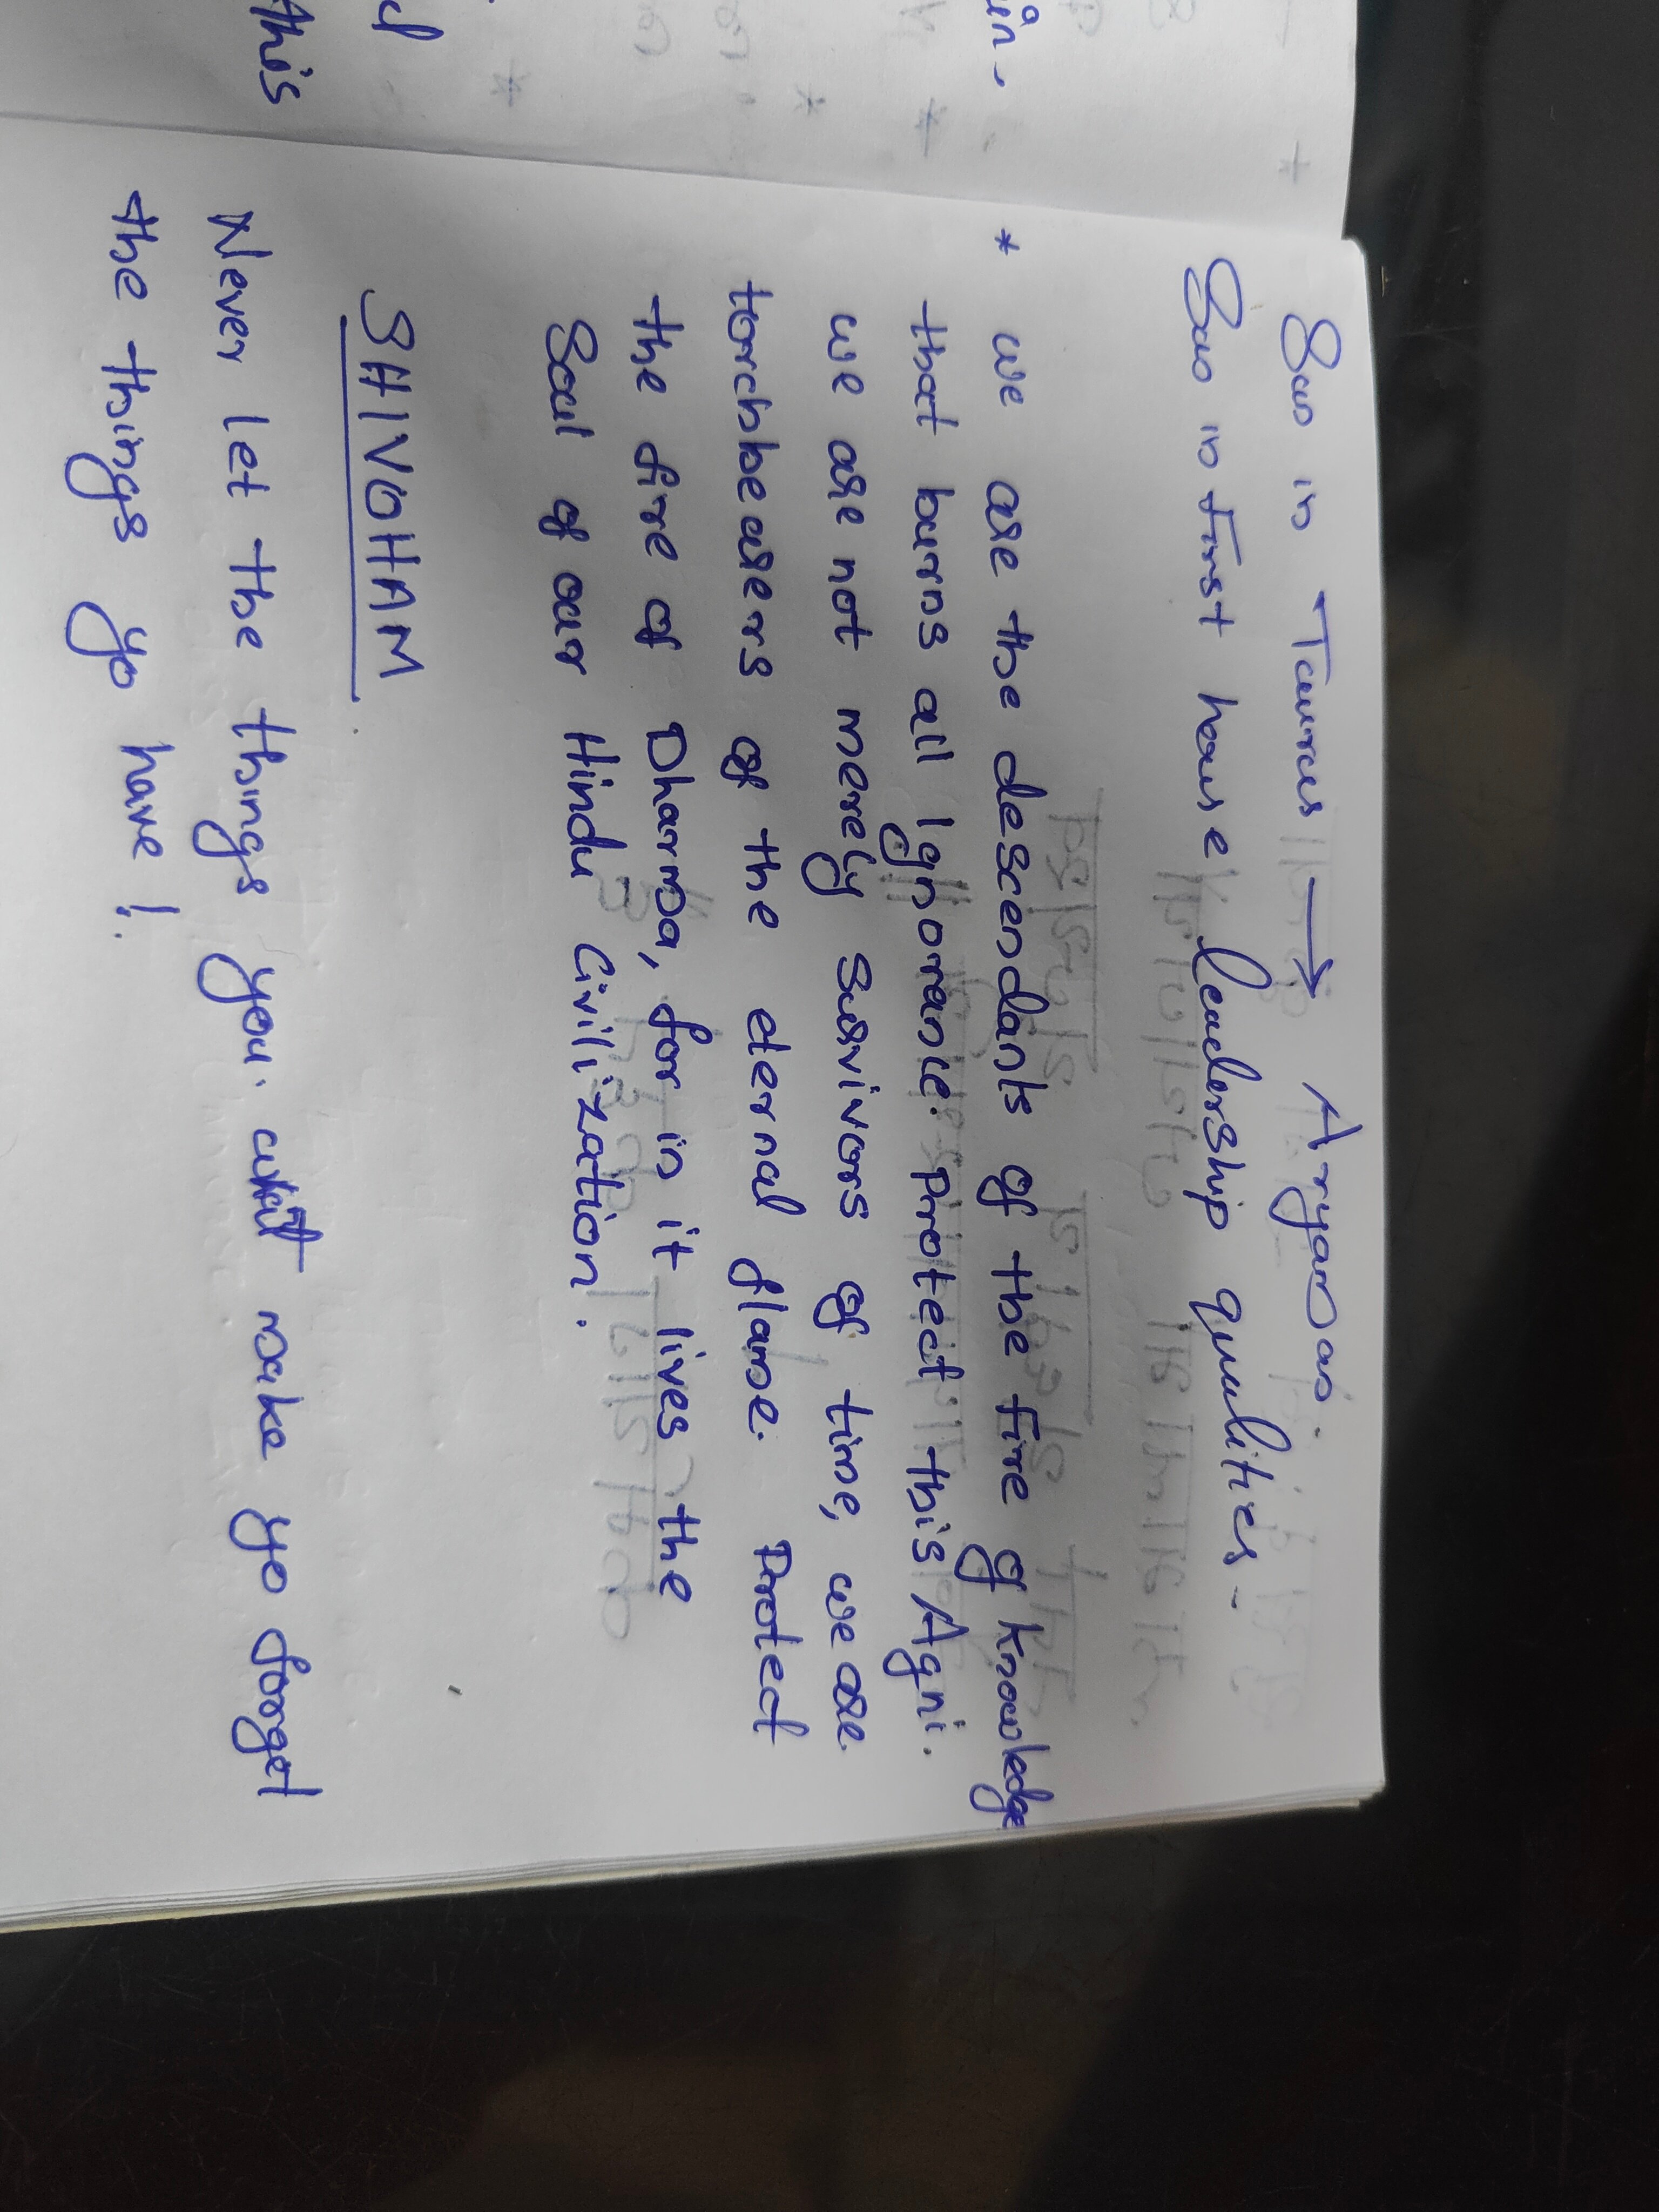 Sun in Taurus → Aryaman.
Sun in first house, leadership qualities -
* we are the descendants of the fire of knowledge
that burns all Ignorance. Protect this Agni.
we are not merely survivors of time, we are
torchbearers of the eternal flame. Protect
the fire of Dharma, for in it lives the
Soul of our Hindu Civilization.
SHIVOHAM
Never let the things you want make yo forget
the things yo have!
this